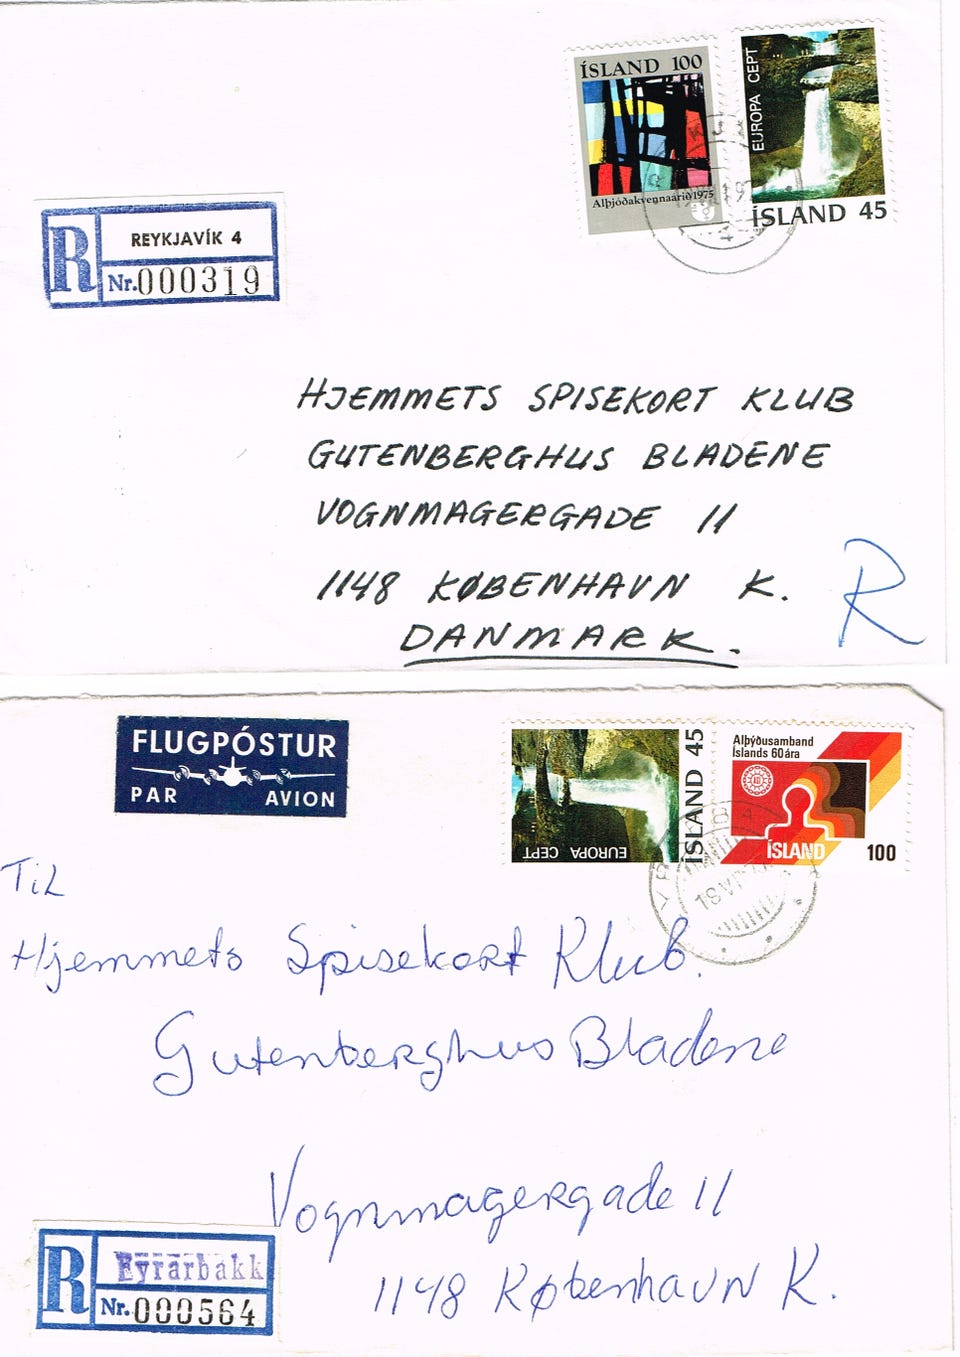 ÍSLAND 100
Alþjóðakvennaárið 1975
EUROPA CEPT
ÍSLAND 45
R
REYKJAVÍK 4
Nr. 000319
HJEMMETS SPISEKORT KLUB
GUTENBERGHUS BLADENE
VOGNMAGERGADE 11
1148 KØBENHAVN K.
DANMARK.
R
FLUGPÓSTUR
PAR AVION
EUROPA CEPT
ÍSLAND 45
Alþýðusamband
Íslands 60 ára
ÍSLAND
100
18 VI
Til
Hjemmets Spisekort Klub.
Gutenberghus Bladene
Vognmagergade 11
1148 København K.
R
Eyrarbakk
Nr. 000564